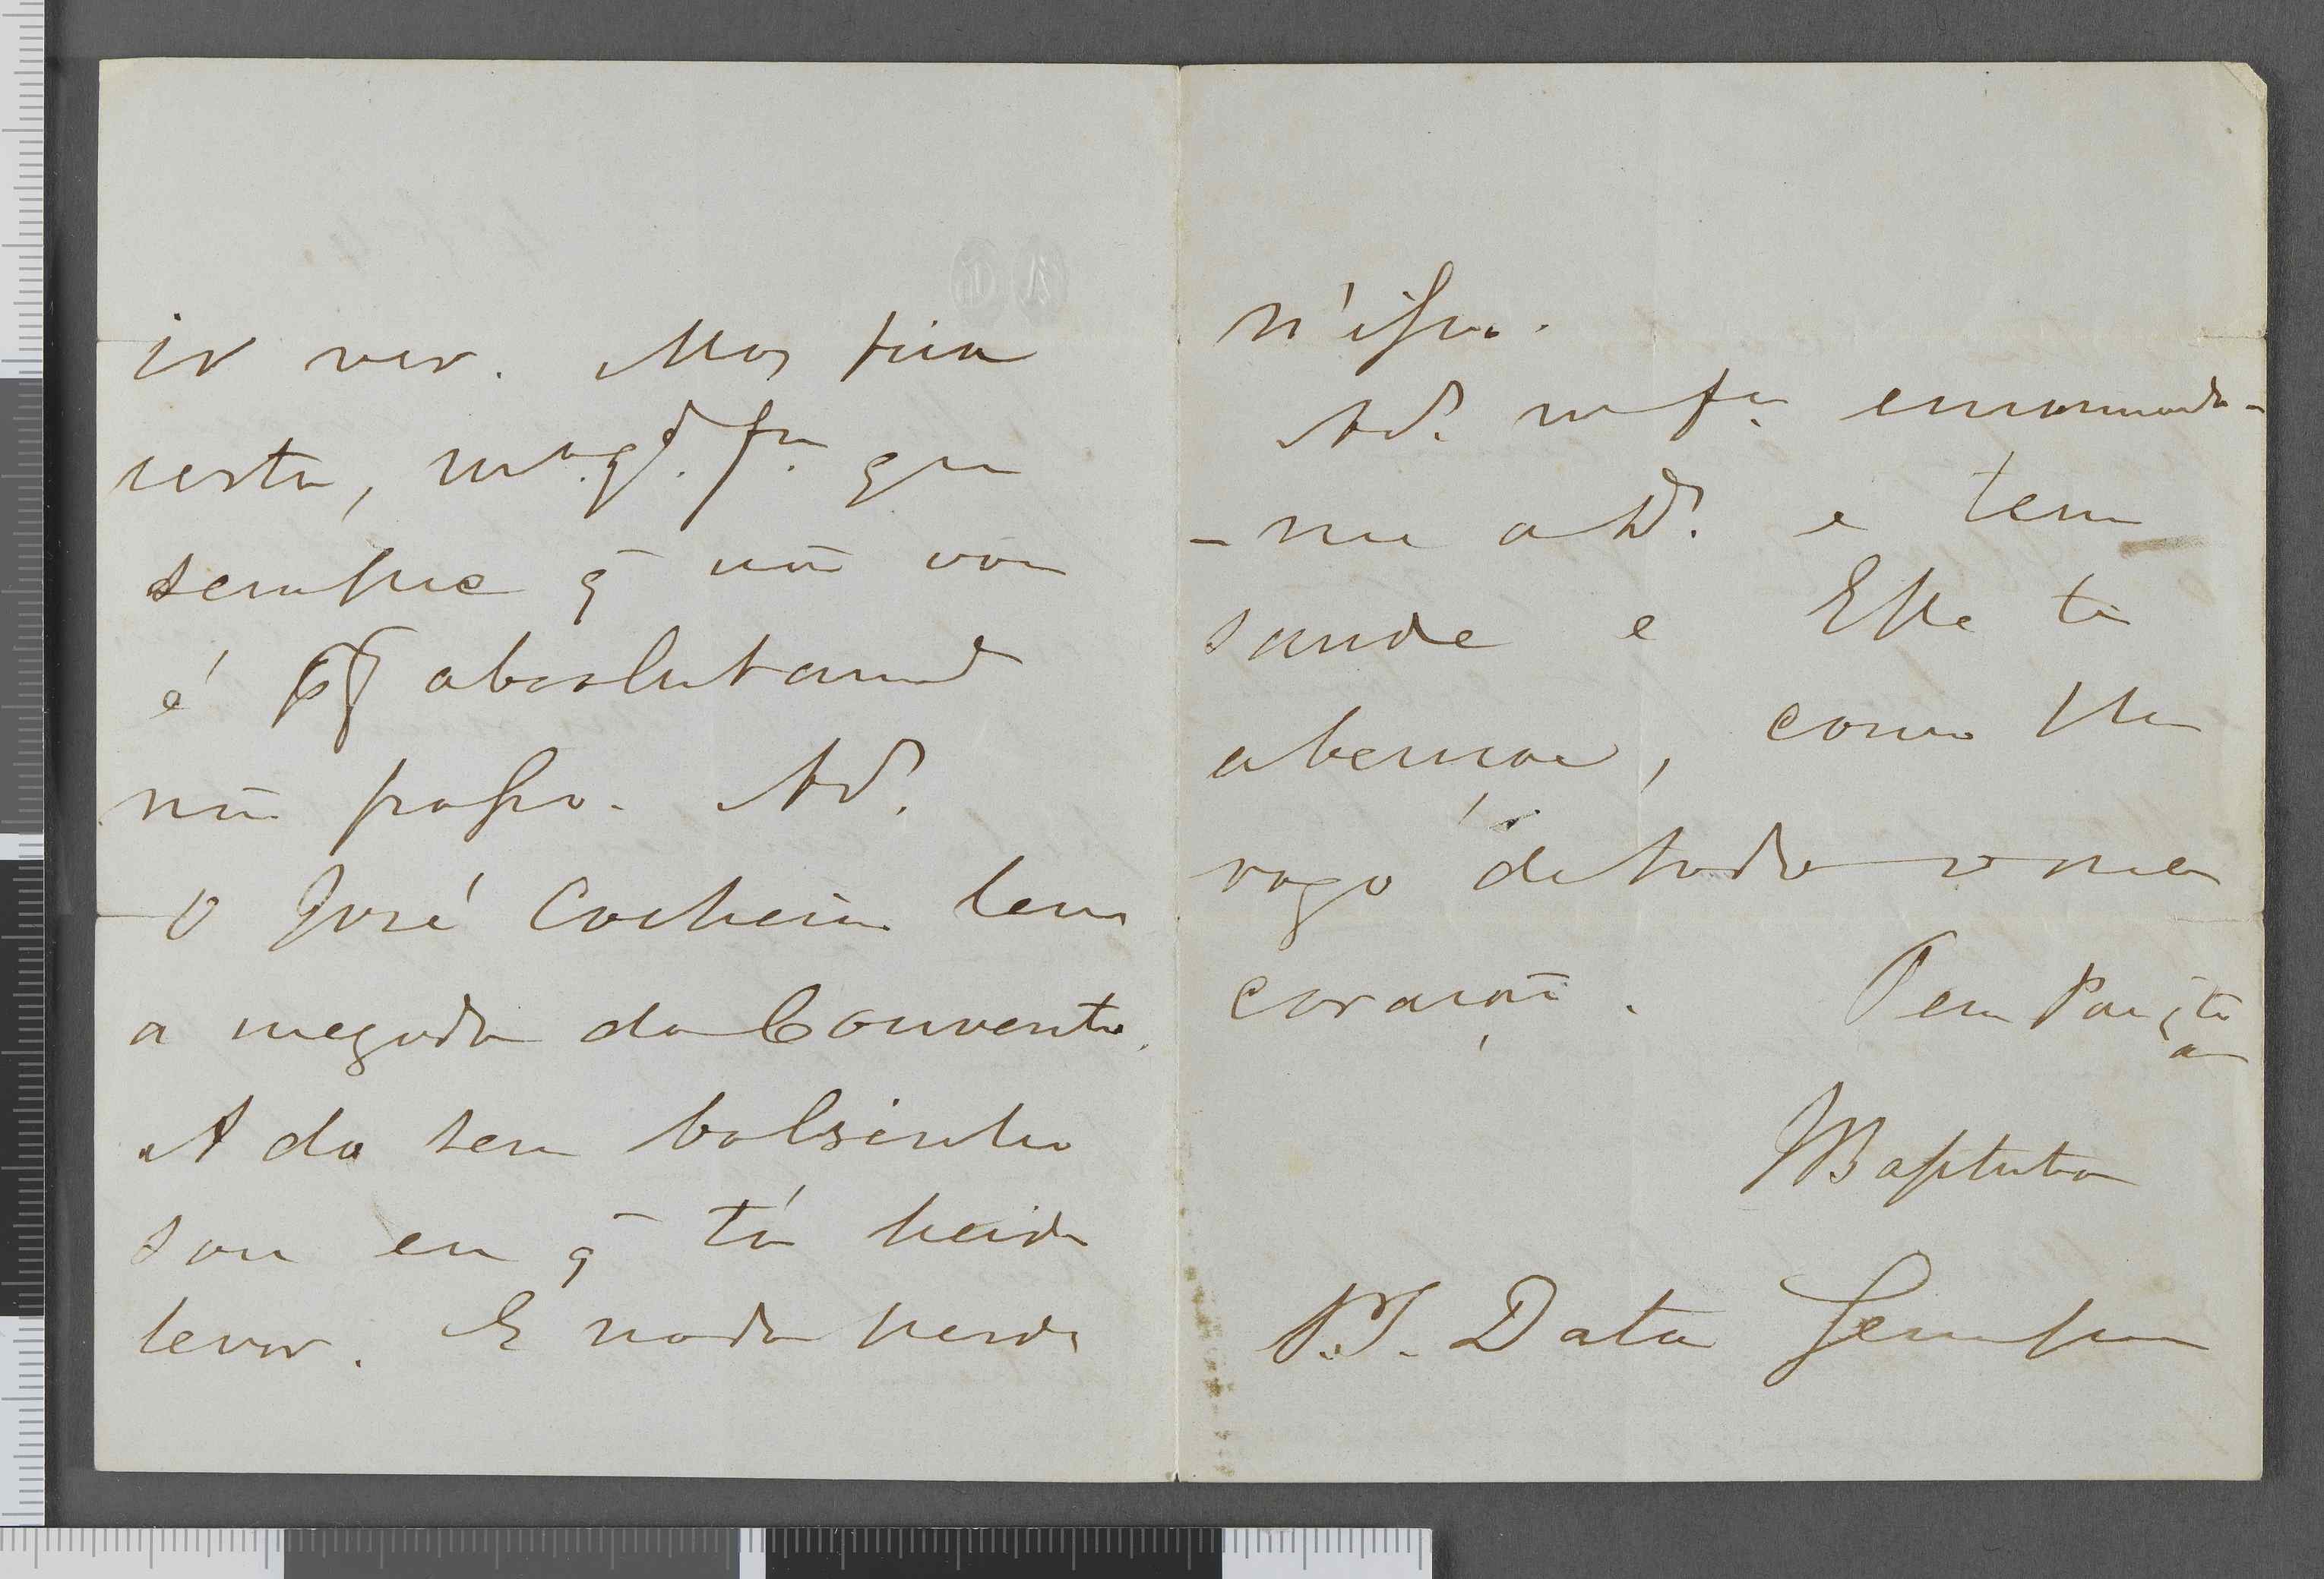 ir ver. Mas fica
certa, m.ª q.d. f.ª que
sempre q̄ não vou
é pq̄ absolutam.e
não posso. Ad.s
O José Cocheiro leva
a mezada do Convento.
A do seu bolsinho
sou eu q̄ tá heide
levar. E nada perde
n'isso.
Ad.s m.ª f.ª encommenda-
-me a D.s e tem
saude e Elle te
abençoe, como Lhe
rogo de todo o meu
coração.
Teu Pae q̄ te
a
JMBaptista
P.S. Data sempre